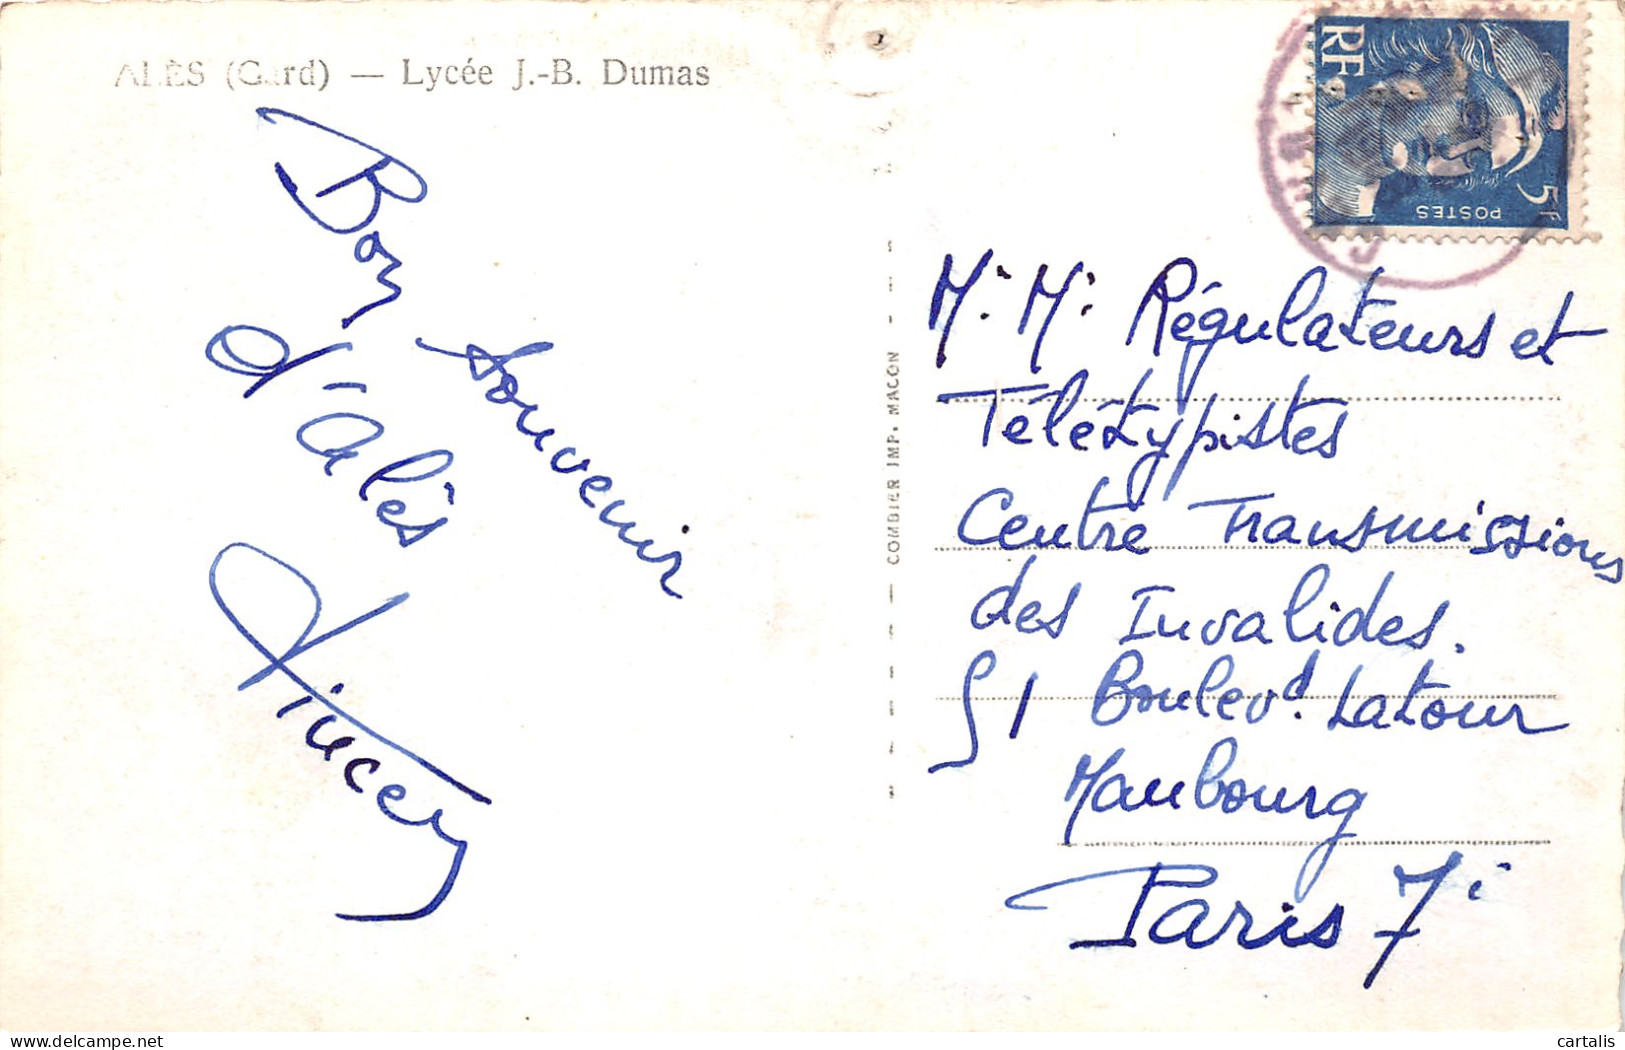 ALÈS (Gard) — Lycée J.-B. Dumas
Bon souvenir
d'Alès
COMBIER IMP. MACON
RF
POSTES
5F
M. M. Régulateurs et
Télétypistes
Centre Transmissions
des Invalides.
51 Boulevd. Latour
Maubourg
Paris 7e
cartalis
delcampe.net